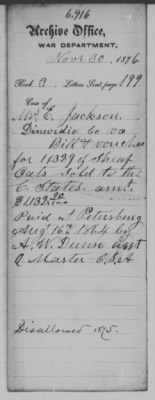 6,916
Archive Office,
WAR DEPARTMENT,
Nov. 30, 1876
Book 3 Letters Sent, page 199
Case of
Jackson
Dinwidie Co Va
Bill & voucher
for 11329 of Sheaf
Oats Sold to the
C. States amt.
$1132 90
Paid at Petersburg
Aug 16th 1864 by
A. W. Dunn Asst
Q Master C.S.A
Disallowed 1875.